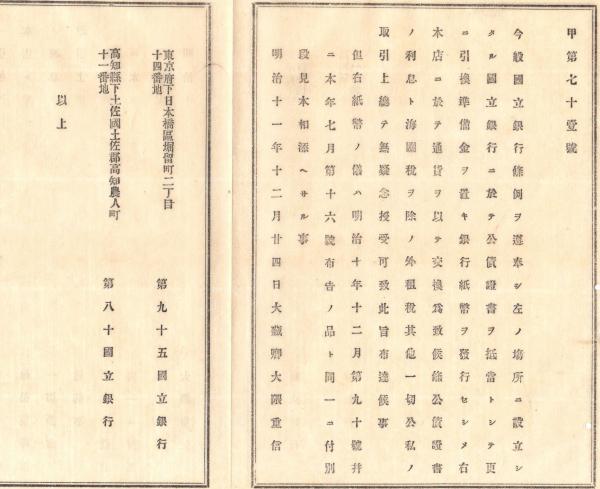 甲第七十壹號
今般國立銀行條例ヲ遵奉シ左ノ塲所ニ設立シ
タル國立銀行ニ於テ公債證書ヲ抵當トシテ更
ニ引換凖備金ヲ置キ銀行紙幣ヲ發行セシメ右
本店ニ於テ通貨ヲ以テ交換爲致候條公債證書
ノ利息ト海關稅ヲ除ノ外租稅其他一切公私ノ
取引上總テ無疑念授受可致此旨布達候事
但右紙幣ノ儀ハ明治十年十二月第九十號幷
ニ本年七月第十六號布告ノ品ト同一ニ付別
段見本相添ヘサル事
明治十一年十二月廿四日大藏卿大隈重信
東京府下日本橋區堀留町二丁目
十四番地
第九十五國立銀行
高知縣下土佐國土佐郡高知農人町
十一番地
第八十國立銀行
以上